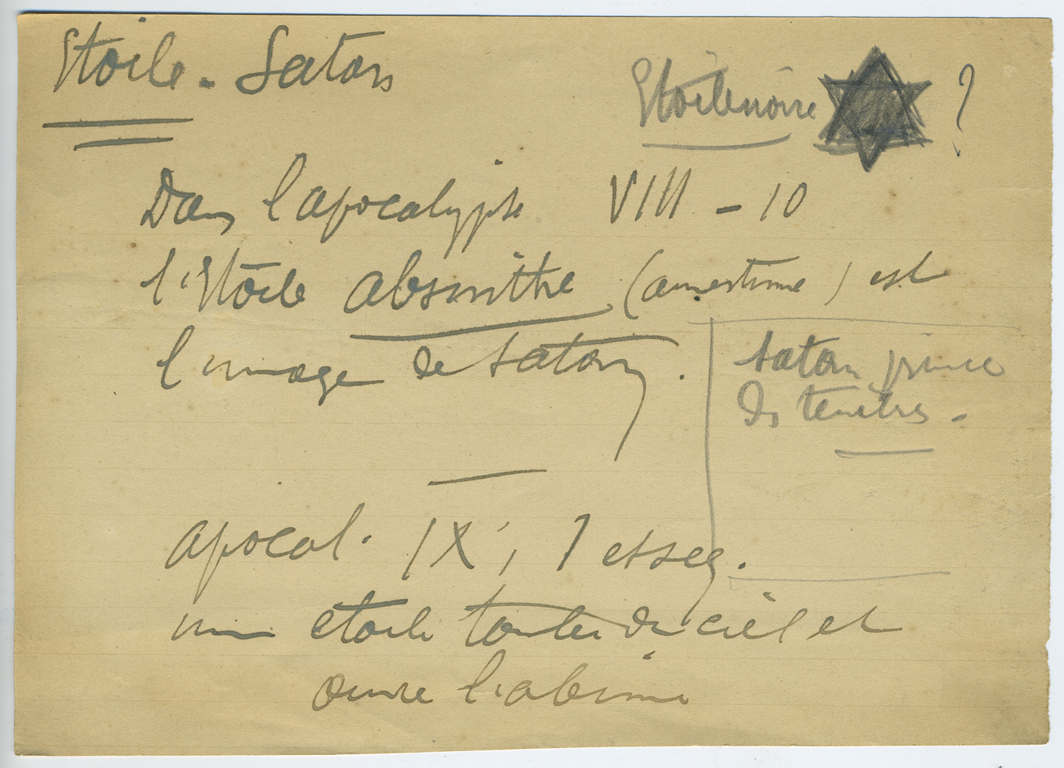 Etoile - Satan
Etoile noire ?
Dans l'apocalypse VIII - 10
l'Etoile absinthe (amertume) est
l'image de Satan.
Satan prince
des tenèbres -
apocal. IX, 1 et seq.
une étoile tombée du ciel et
ouvre l'abime